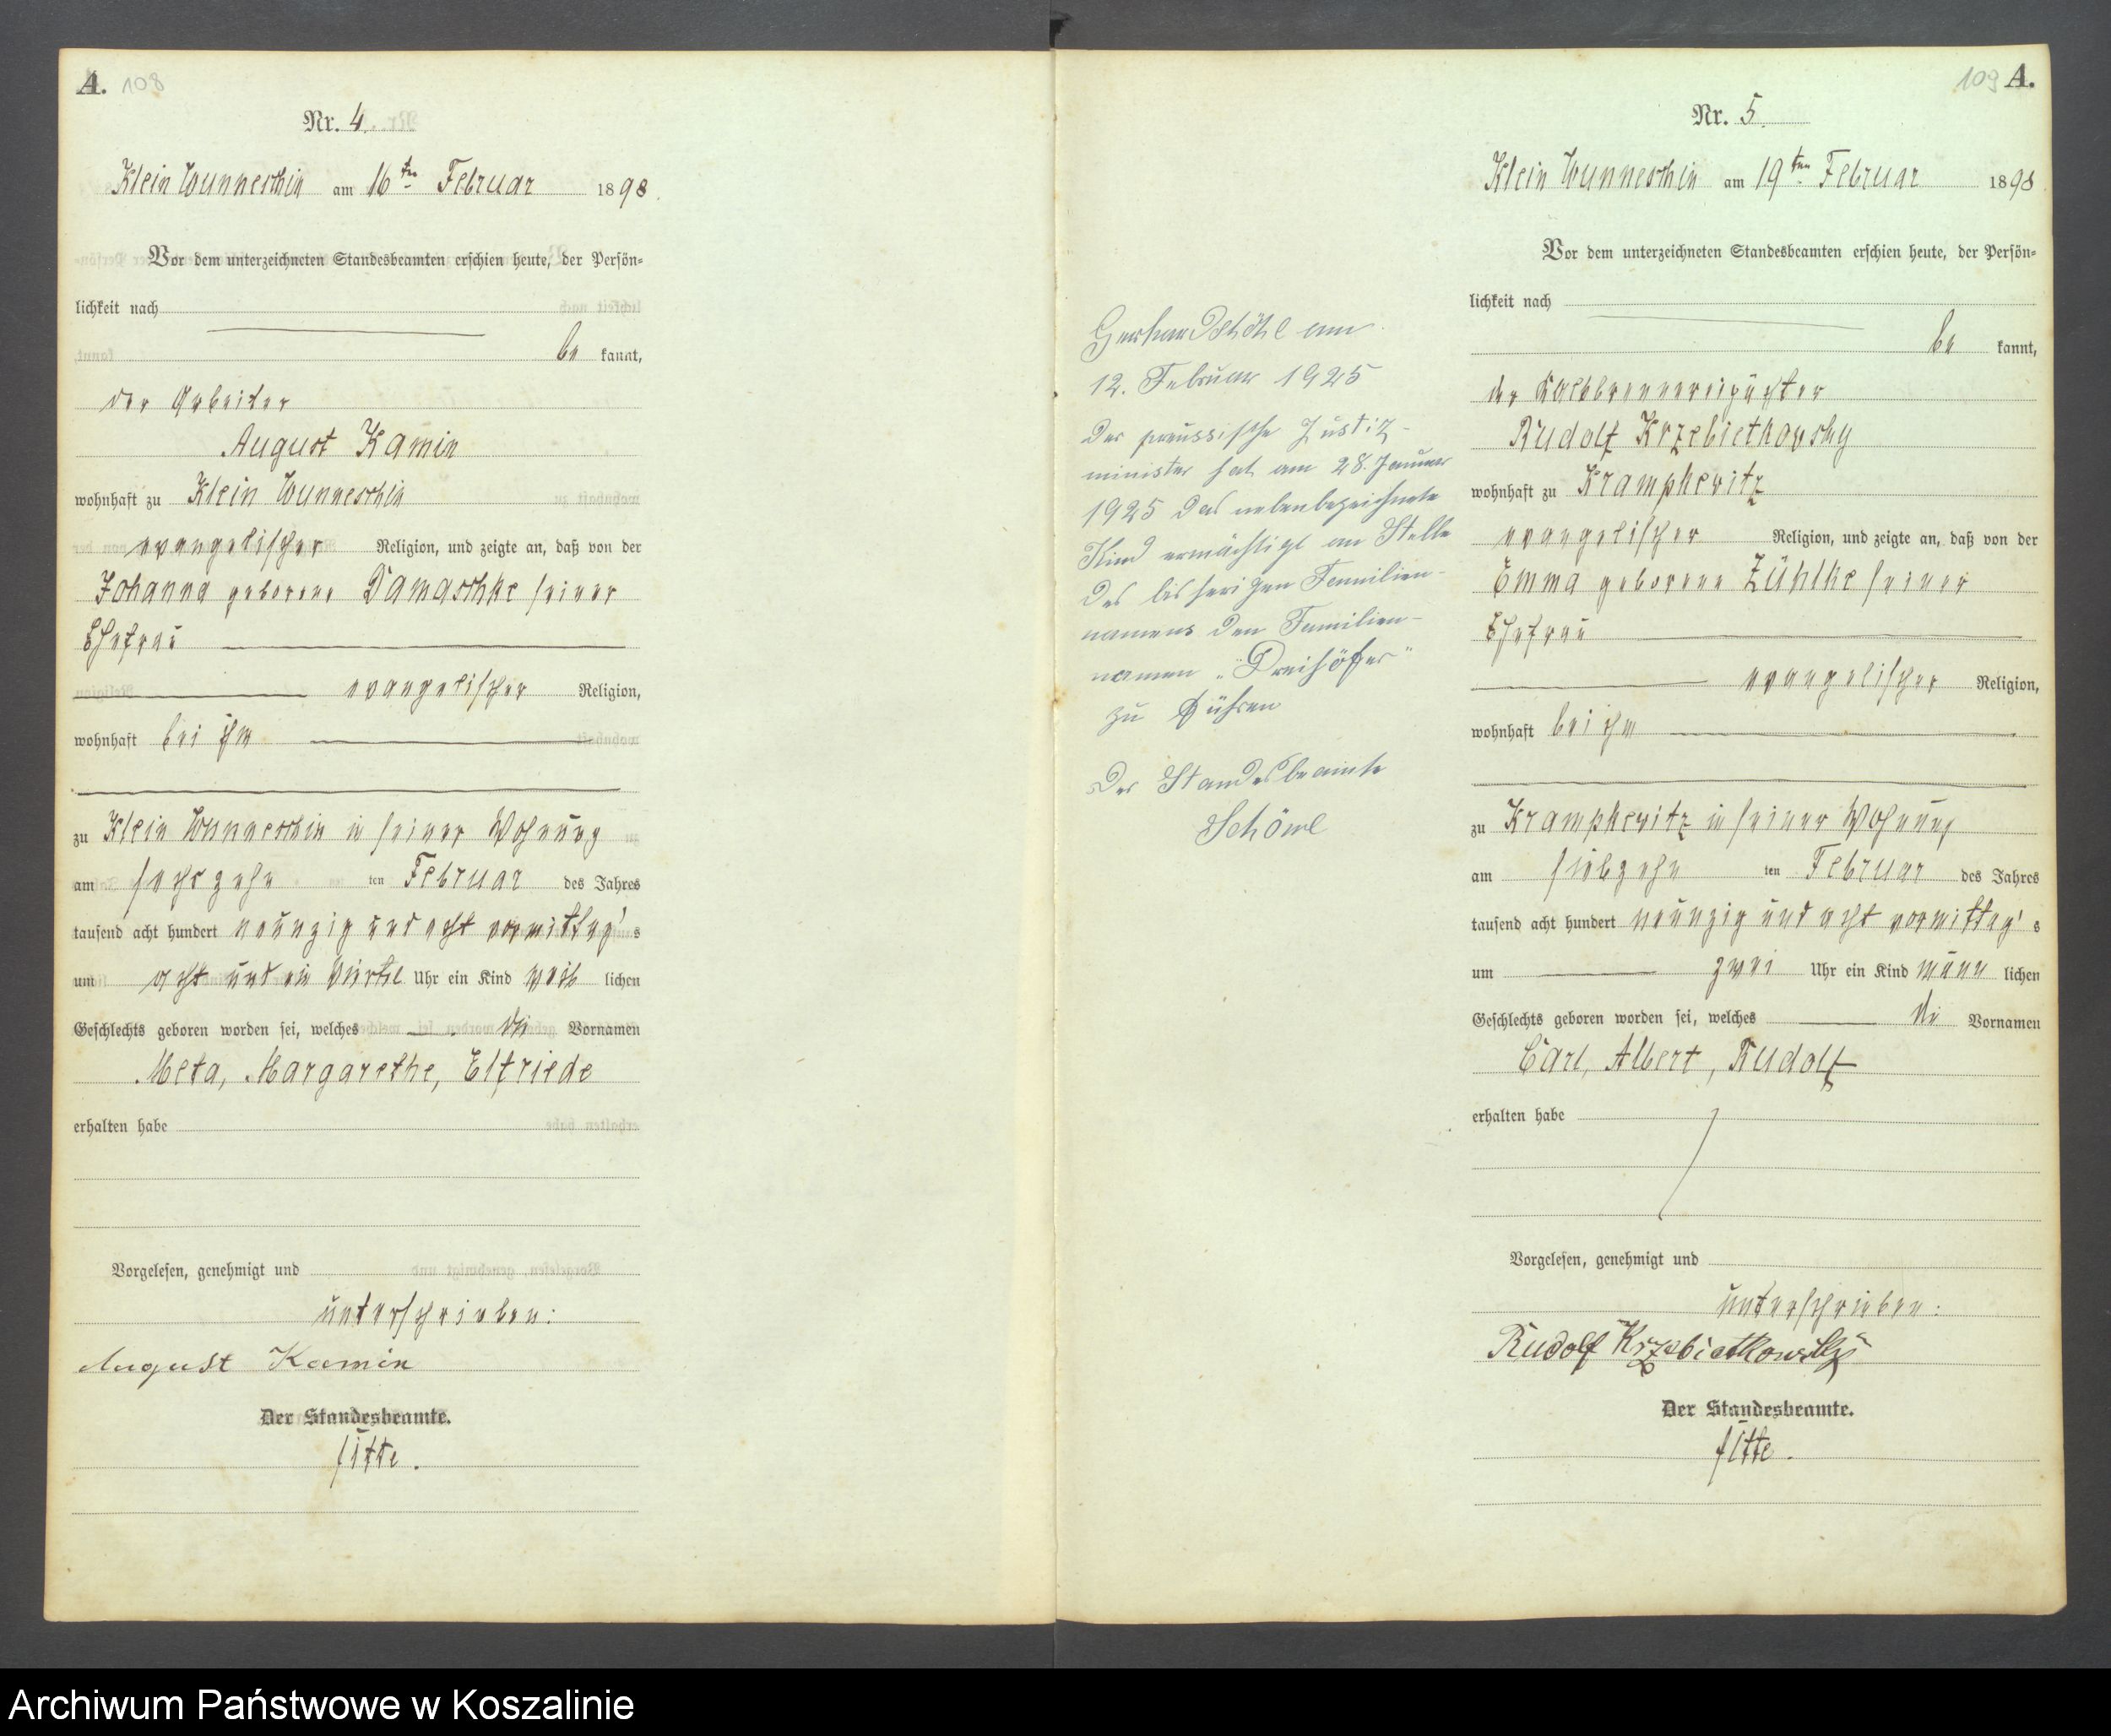 A. 108
Nr. 4.
Klein Wunneschin am 16ten Februar 1898.
Vor dem unterzeichneten Standesbeamten erschien heute, der Persön-
lichkeit nach
be kannt,
der Arbeiter
August Kamin
wohnhaft zu Klein Wunneschin
evangelischer Religion, und zeigte an, daß von der
Johanna geborene Damaschke seiner
Ehefrau
evangelischer Religion,
wohnhaft bei ihm
zu Klein Wunneschin in seiner Wohnung
am sechszehn ten Februar des Jahres
tausend acht hundert neunzig und acht vormittag's
um acht und ein Viertel Uhr ein Kind weib lichen
Geschlechts geboren worden sei, welches die Vornamen
Meta, Margarethe, Elfriede
erhalten habe
Vorgelesen, genehmigt und
unterschrieben:
August Kamin
Der Standesbeamte.
109 A.
Nr. 5.
Klein Wunneschin am 19ten Februar 1898
Vor dem unterzeichneten Standesbeamten erschien heute, der Persön-
lichkeit nach
be kannt,
der
Rudolf Krzebietkowsky
wohnhaft zu Krampkewitz
evangelischer Religion, und zeigte an, daß von der
Emma geborene Zühlke seiner
Ehefrau
evangelischer Religion,
wohnhaft bei ihm
zu Krampkewitz in seiner Wohnung
am siebzehn ten Februar des Jahres
tausend acht hundert neunzig und acht vormittag's
um zwei Uhr ein Kind männ lichen
Geschlechts geboren worden sei, welches die Vornamen
Carl, Albert, Rudolf
erhalten habe
Vorgelesen, genehmigt und
unterschrieben:
Rudolf Krzebiatkowsky
Der Standesbeamte.
am
12. Februar 1925
Der preussische Justiz-
minister hat am 28. Januar
1925 das nebenbezeichnete
Kind ermächtigt an Stelle
des bisherigen Familien-
namens den Familien-
namen „Dreihöfer"
zu führen
Der Standesbeamte
Archiwum Państwowe w Koszalinie